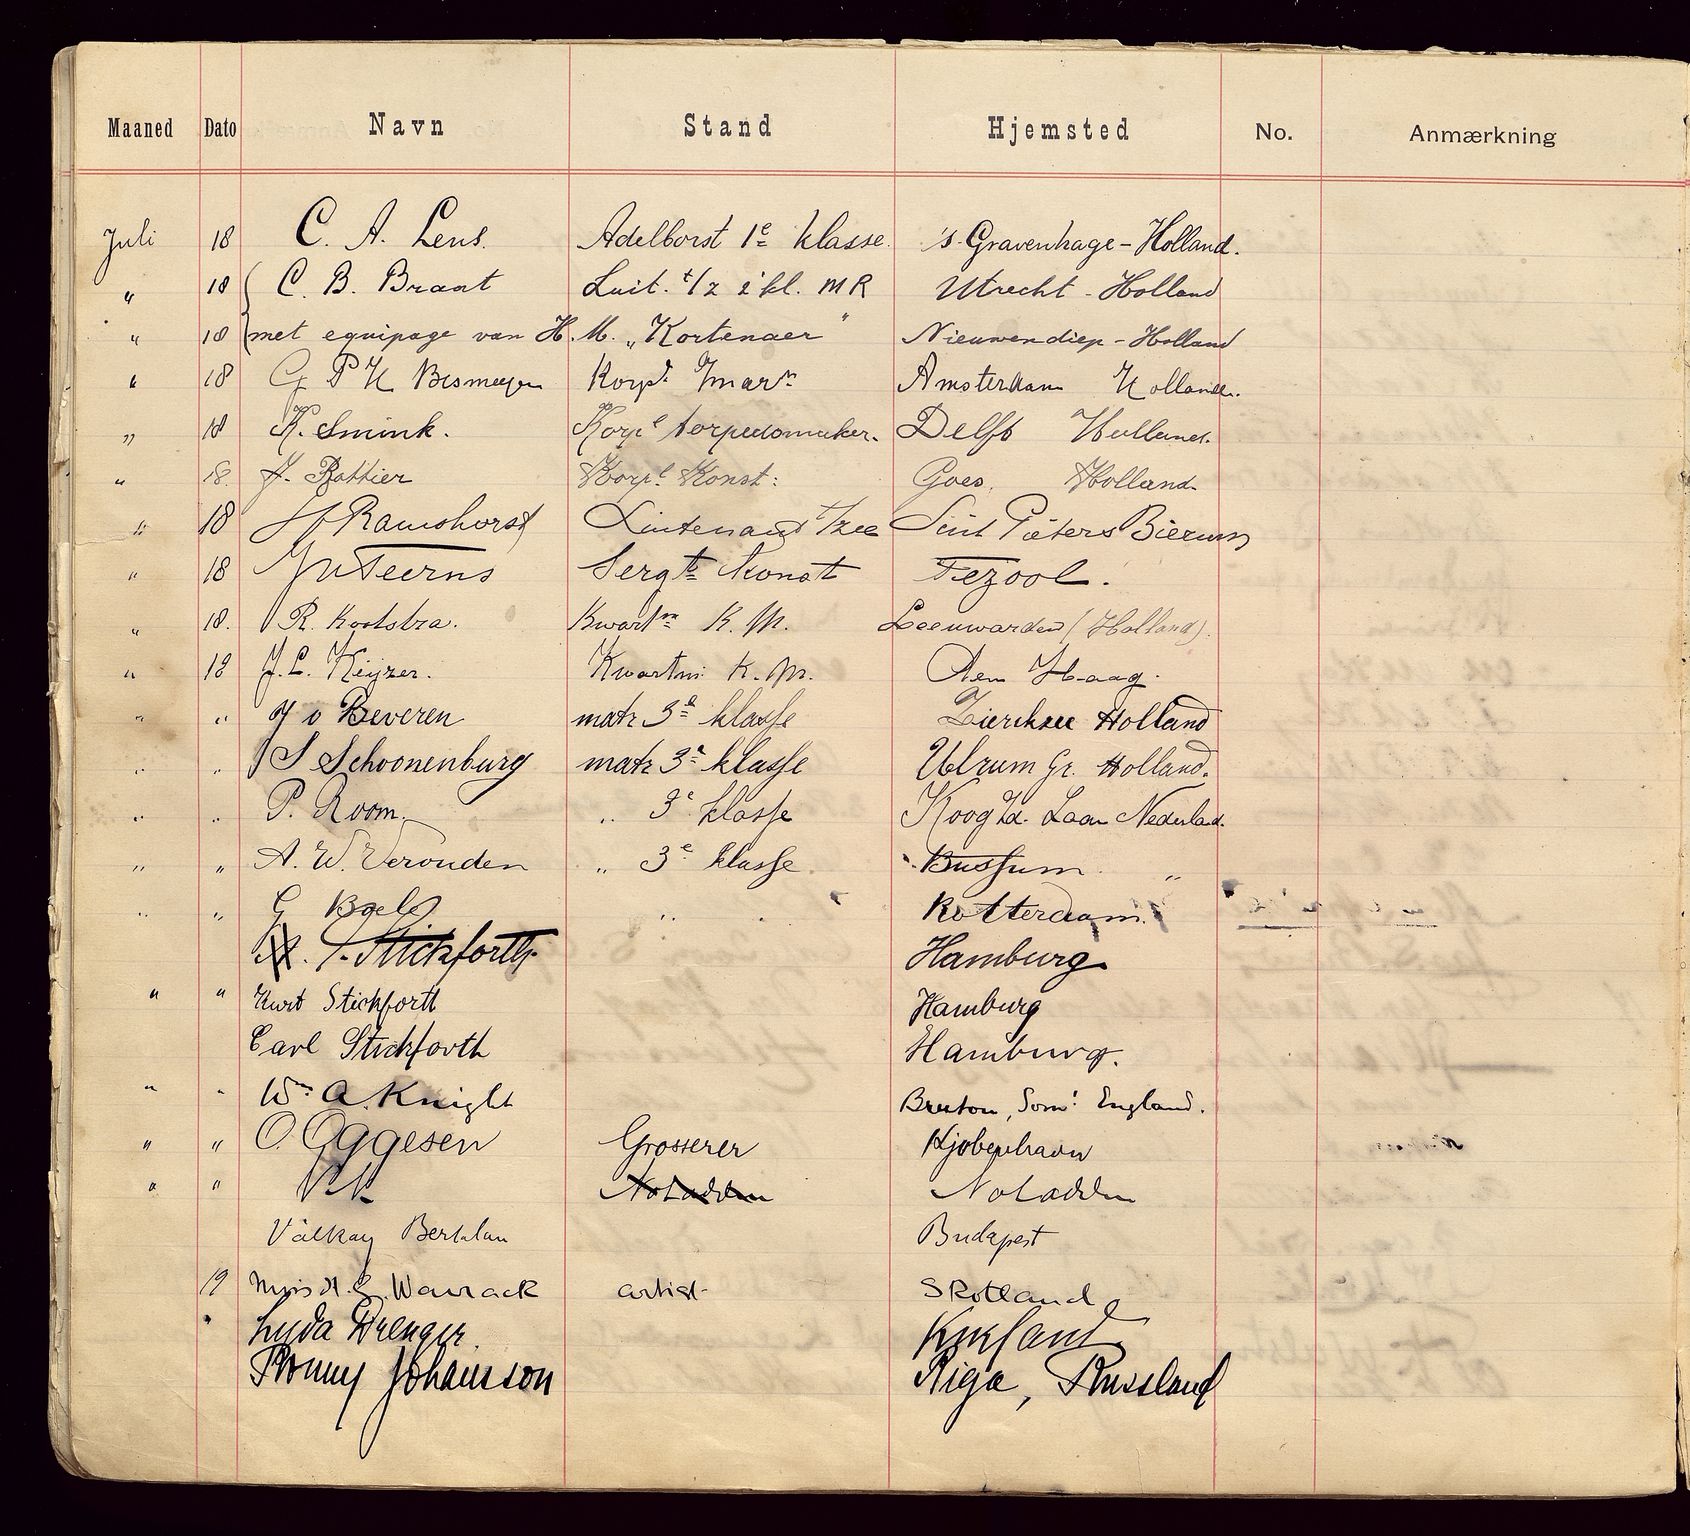 Maaned Dato Navn Stand Hjemsted No. Anmærkning
Juli 18 C. A. Lens. Adelborst 1e klasse. 's-Gravenhage-Holland.
" 18 C. B. Braat Luit. t/z 2e kl. MR Utrecht - Holland
" 18 met equipage van H. M. „Kortenaer" Nieuwendiep - Holland
" 18 G P H Besmeijer Korpl. Holland.
„ 18 K. Smink. Korpl torpedomaker. Delft Holland.
" 18. J. Rottier Korpl Konst: Goes, Holland.
" 18 Ramshorst Luitenant t/zee Sint Pieters Bierum
" 18 Sergt Konst Texool.
" 18. R. Kootstra. Kwartm K. M. Leeuwarden (Holland).
" 18 J. L. Keijzer. Kwartm: K. M. Den Haag.
" " J v Beveren matr 3e klasse Zierikzee Holland
" " S Schoonenburg matr 3e klasse Ulrum Gr. Holland.
" " P. Room. " 3e klasse Koog Zd. Laan Nederland.
" " A. W. Veronden " 3e klasse " Bussum "
" " G Boels " " Rotterdam.
Stickforth. Hamburg.
" " Kurt Stickforth Hamburg
Carl Stickforth Hamburg.
" " Wm A. Knight Bruton, Som: England.
" " O. Aggesen Grosserer Kjøbenhavn
" " Notodden Notodden
Válkay Bertalan Budapest
19 Miss H. G. Warrack artist Skotland
" Lyda Drenger Kurland
Ronny Johansson Riga, Russland